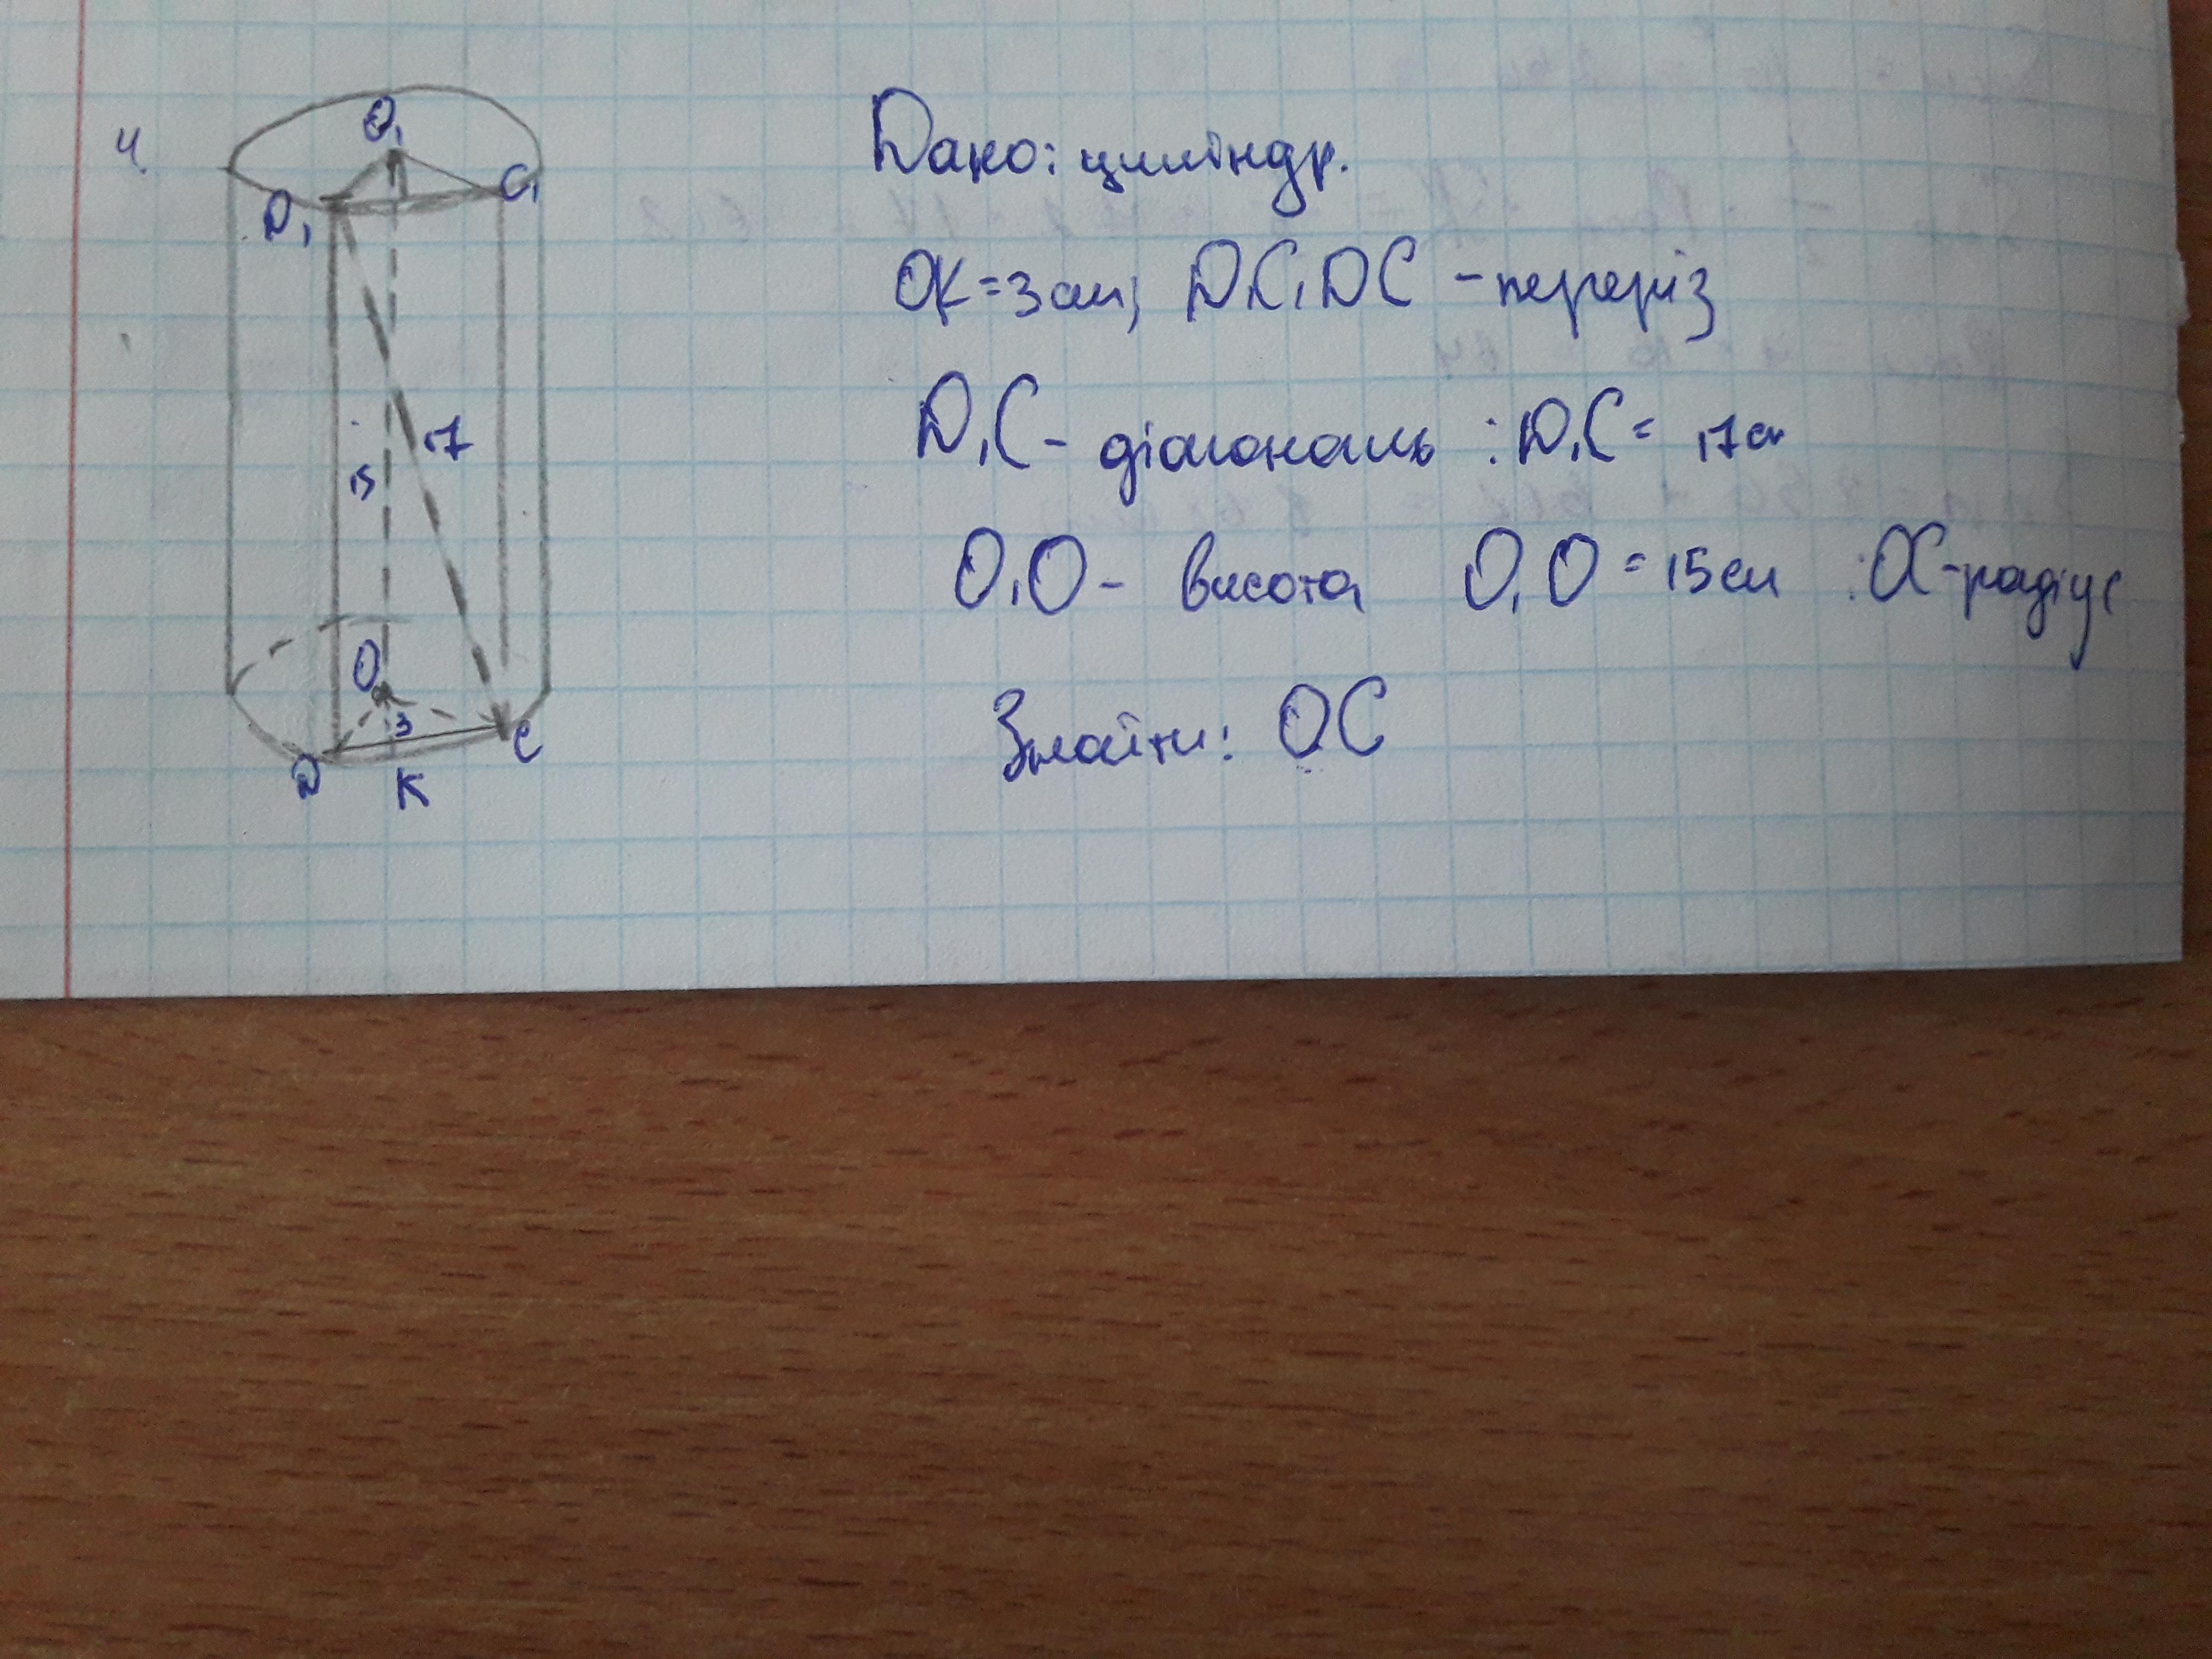 4.
O₁
D₁
C₁
17
15
O
3
D
K
C
Дано: циліндр.
OK = 3 см; D₁C₁DC - переріз
D₁C - діагональ : D₁C = 17 см
O₁O - висота O₁O = 15 см : OC - радіус
Знайти: OC